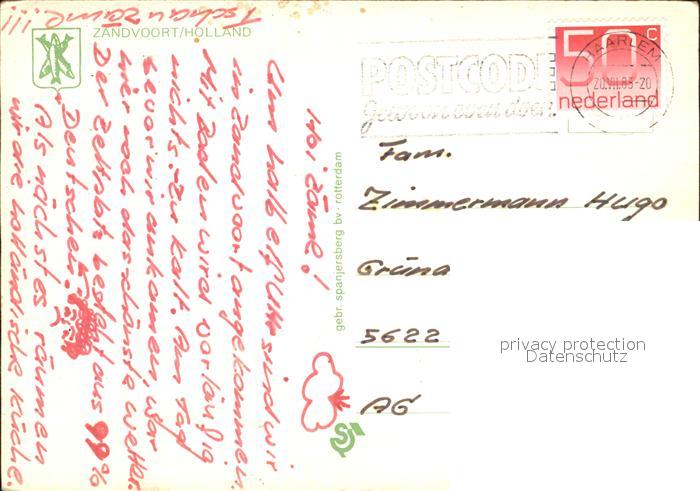 Tschau zäme!!!
ZANDVOORT/HOLLAND
Hoi zäme!
Um halb elf Uhr sind wir
in Zandvoort angekommen.
Mit Baden wird vorläufig
nichts. Zu kalt. Am Tag
bevor wir ankamen, war
hier noch das schönste Wetter.
Der Zeltplatz besteht aus 99%
Deutschen.
Als nächstes räumen
wir die holländische Küche.
gebr. spanjersberg bv - rotterdam
POSTCODE
Gewoon even doen
HAARLEM
20.VII.83-20
50 c
nederland
Fam.
Zimmermann Hugo
Gräna
5622
AG
privacy protection
Datenschutz